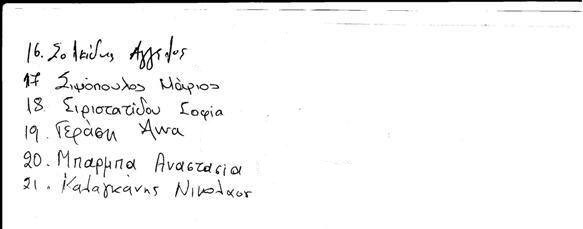 16. Σολκίδης Άγγελος
17 Σιμόπουλος Μάριος
18 Σιριστατίδου Σοφία
19. Γεράση Άννα
20. Μπάρμπα Αναστασία
21. Καλαγκάνης Νικόλαος